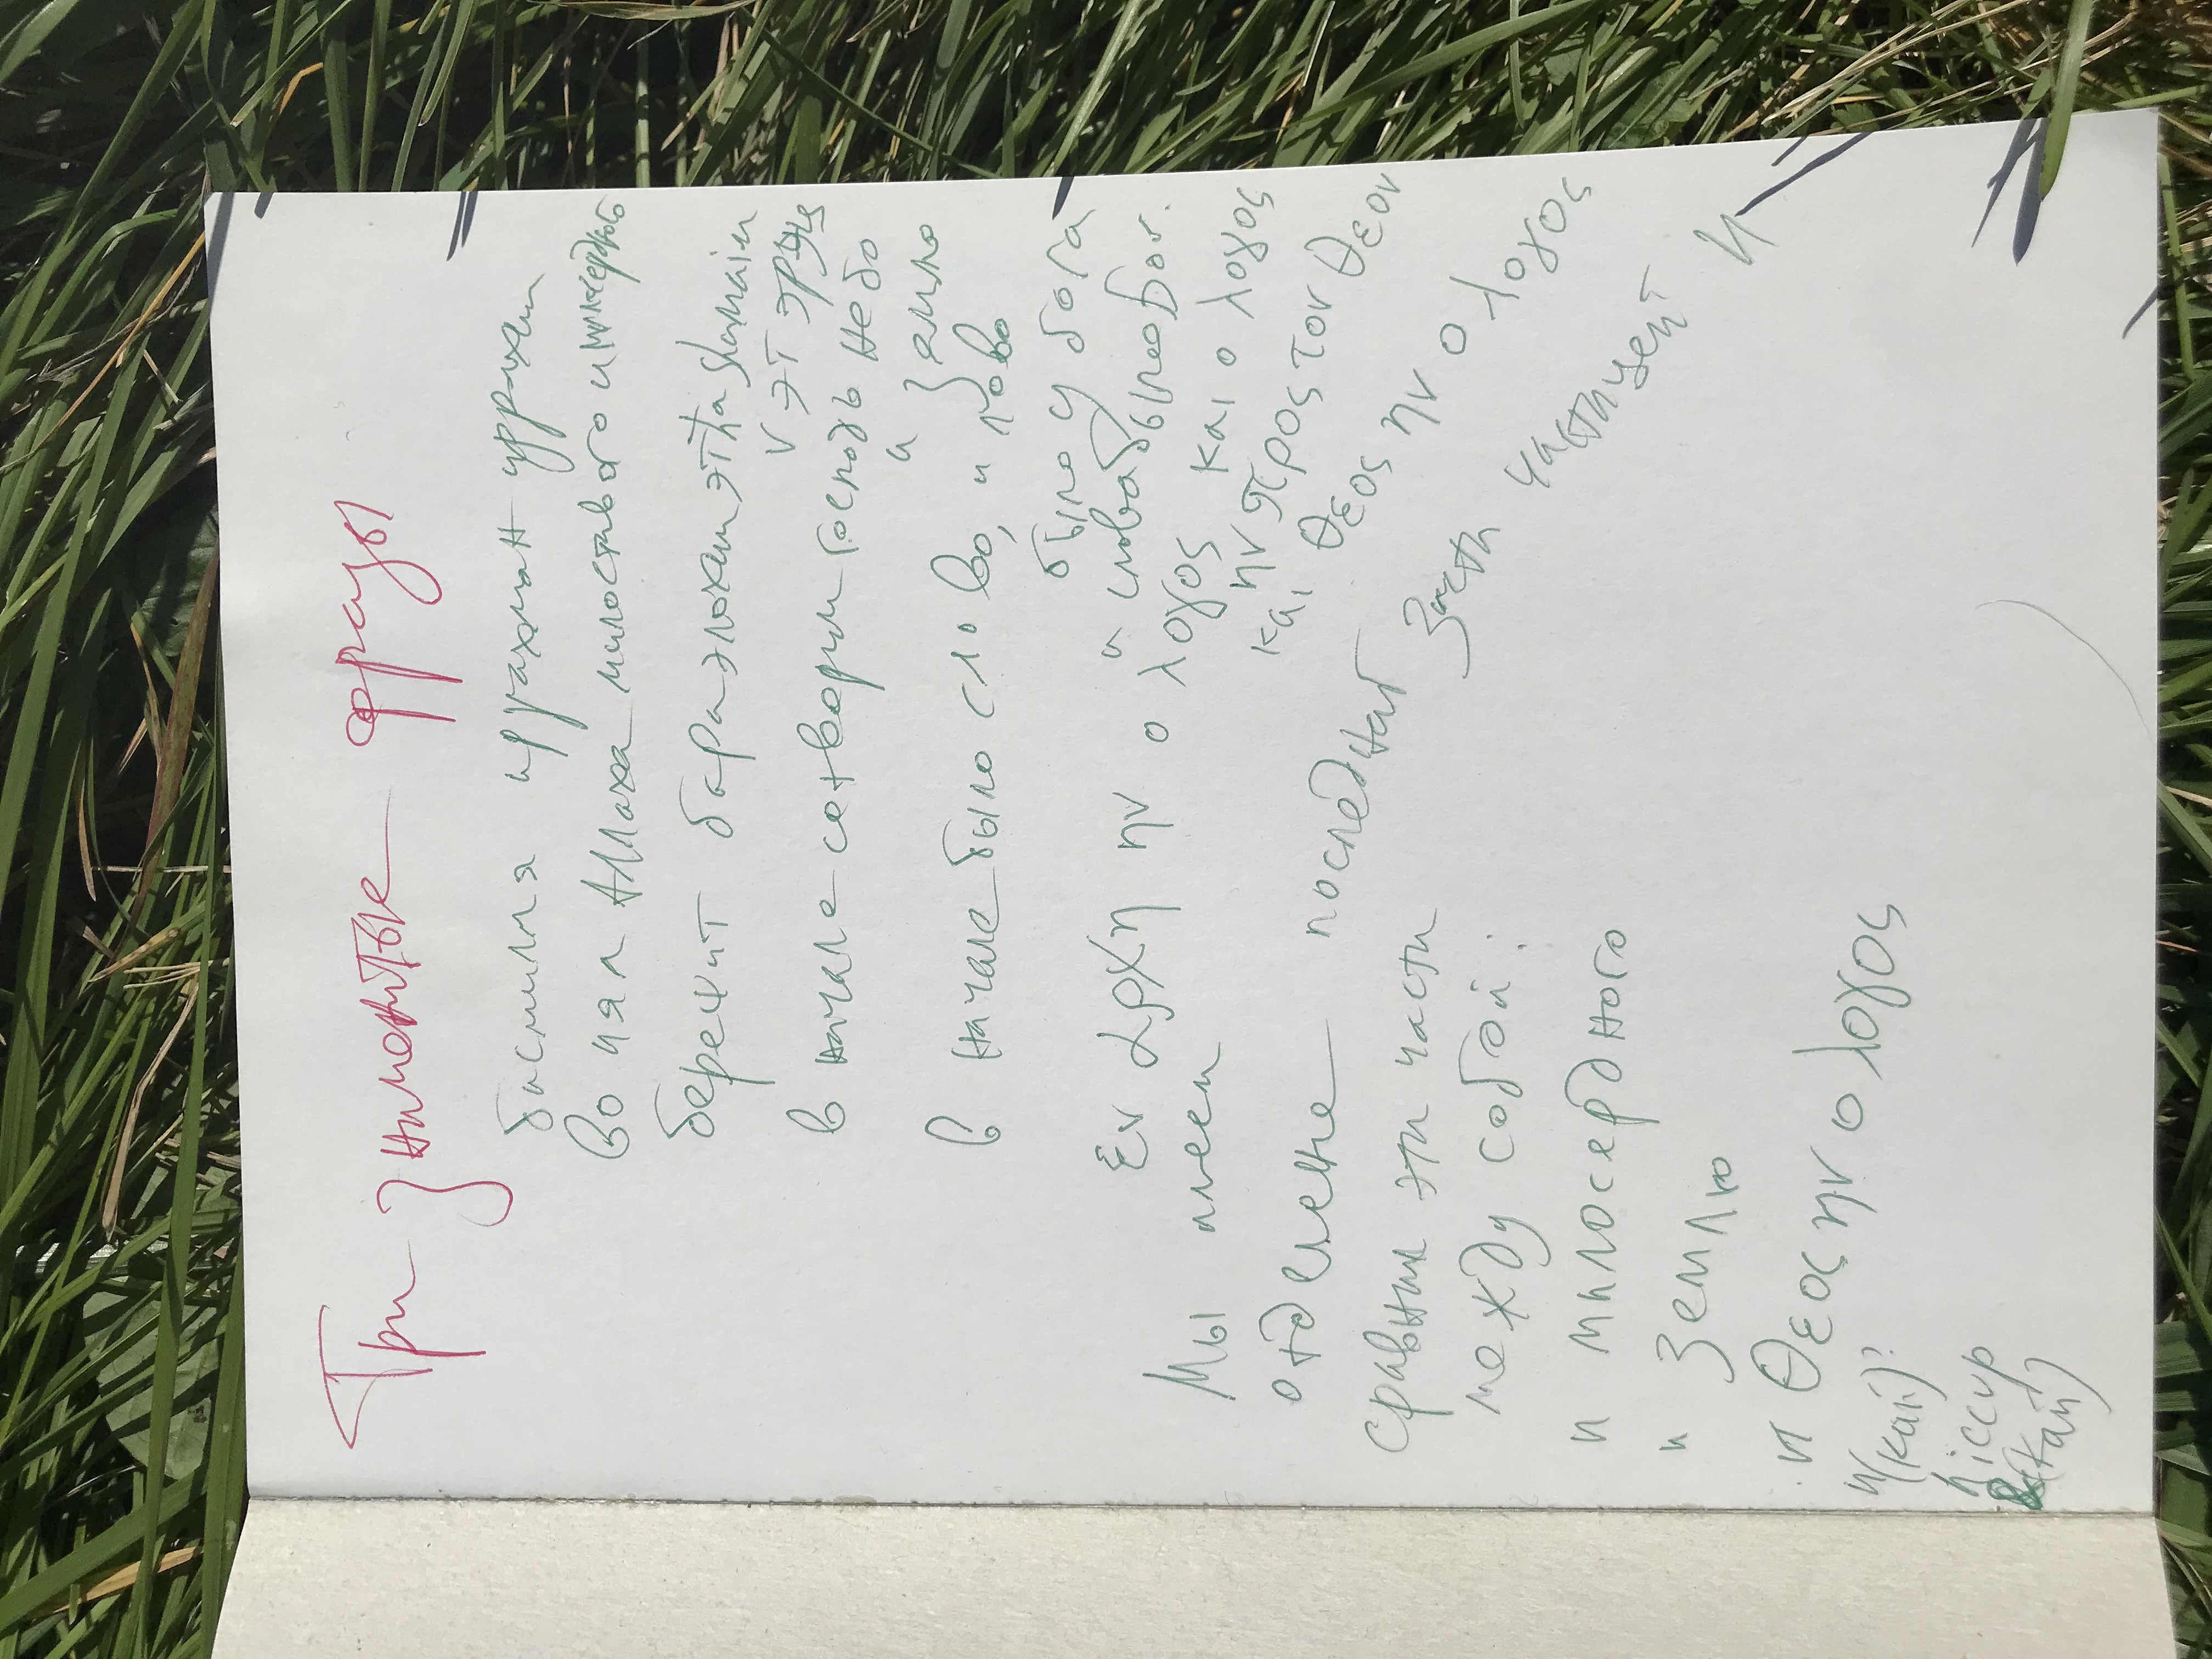 Три знаменитые фразы
басмилля иррахман иррахим
во имя Аллаха милостивого и милосердного
берешит бара элохим эт ha shamaim
v эт эрэц
в начале сотворил господь небо
и землю
в начале было слово, и слово
было у бога
и слово было бог.
εν αρχη ην ο λογος και ο λογος
ην προς τον θεον
και θεος ην ο λογος
Мы имеем
отделение последней части частицей и
сравним эти части
между собой:
и милосердного
и землю
и θεος ην ο λογος
и(кай)?
hiccup
&(кай)